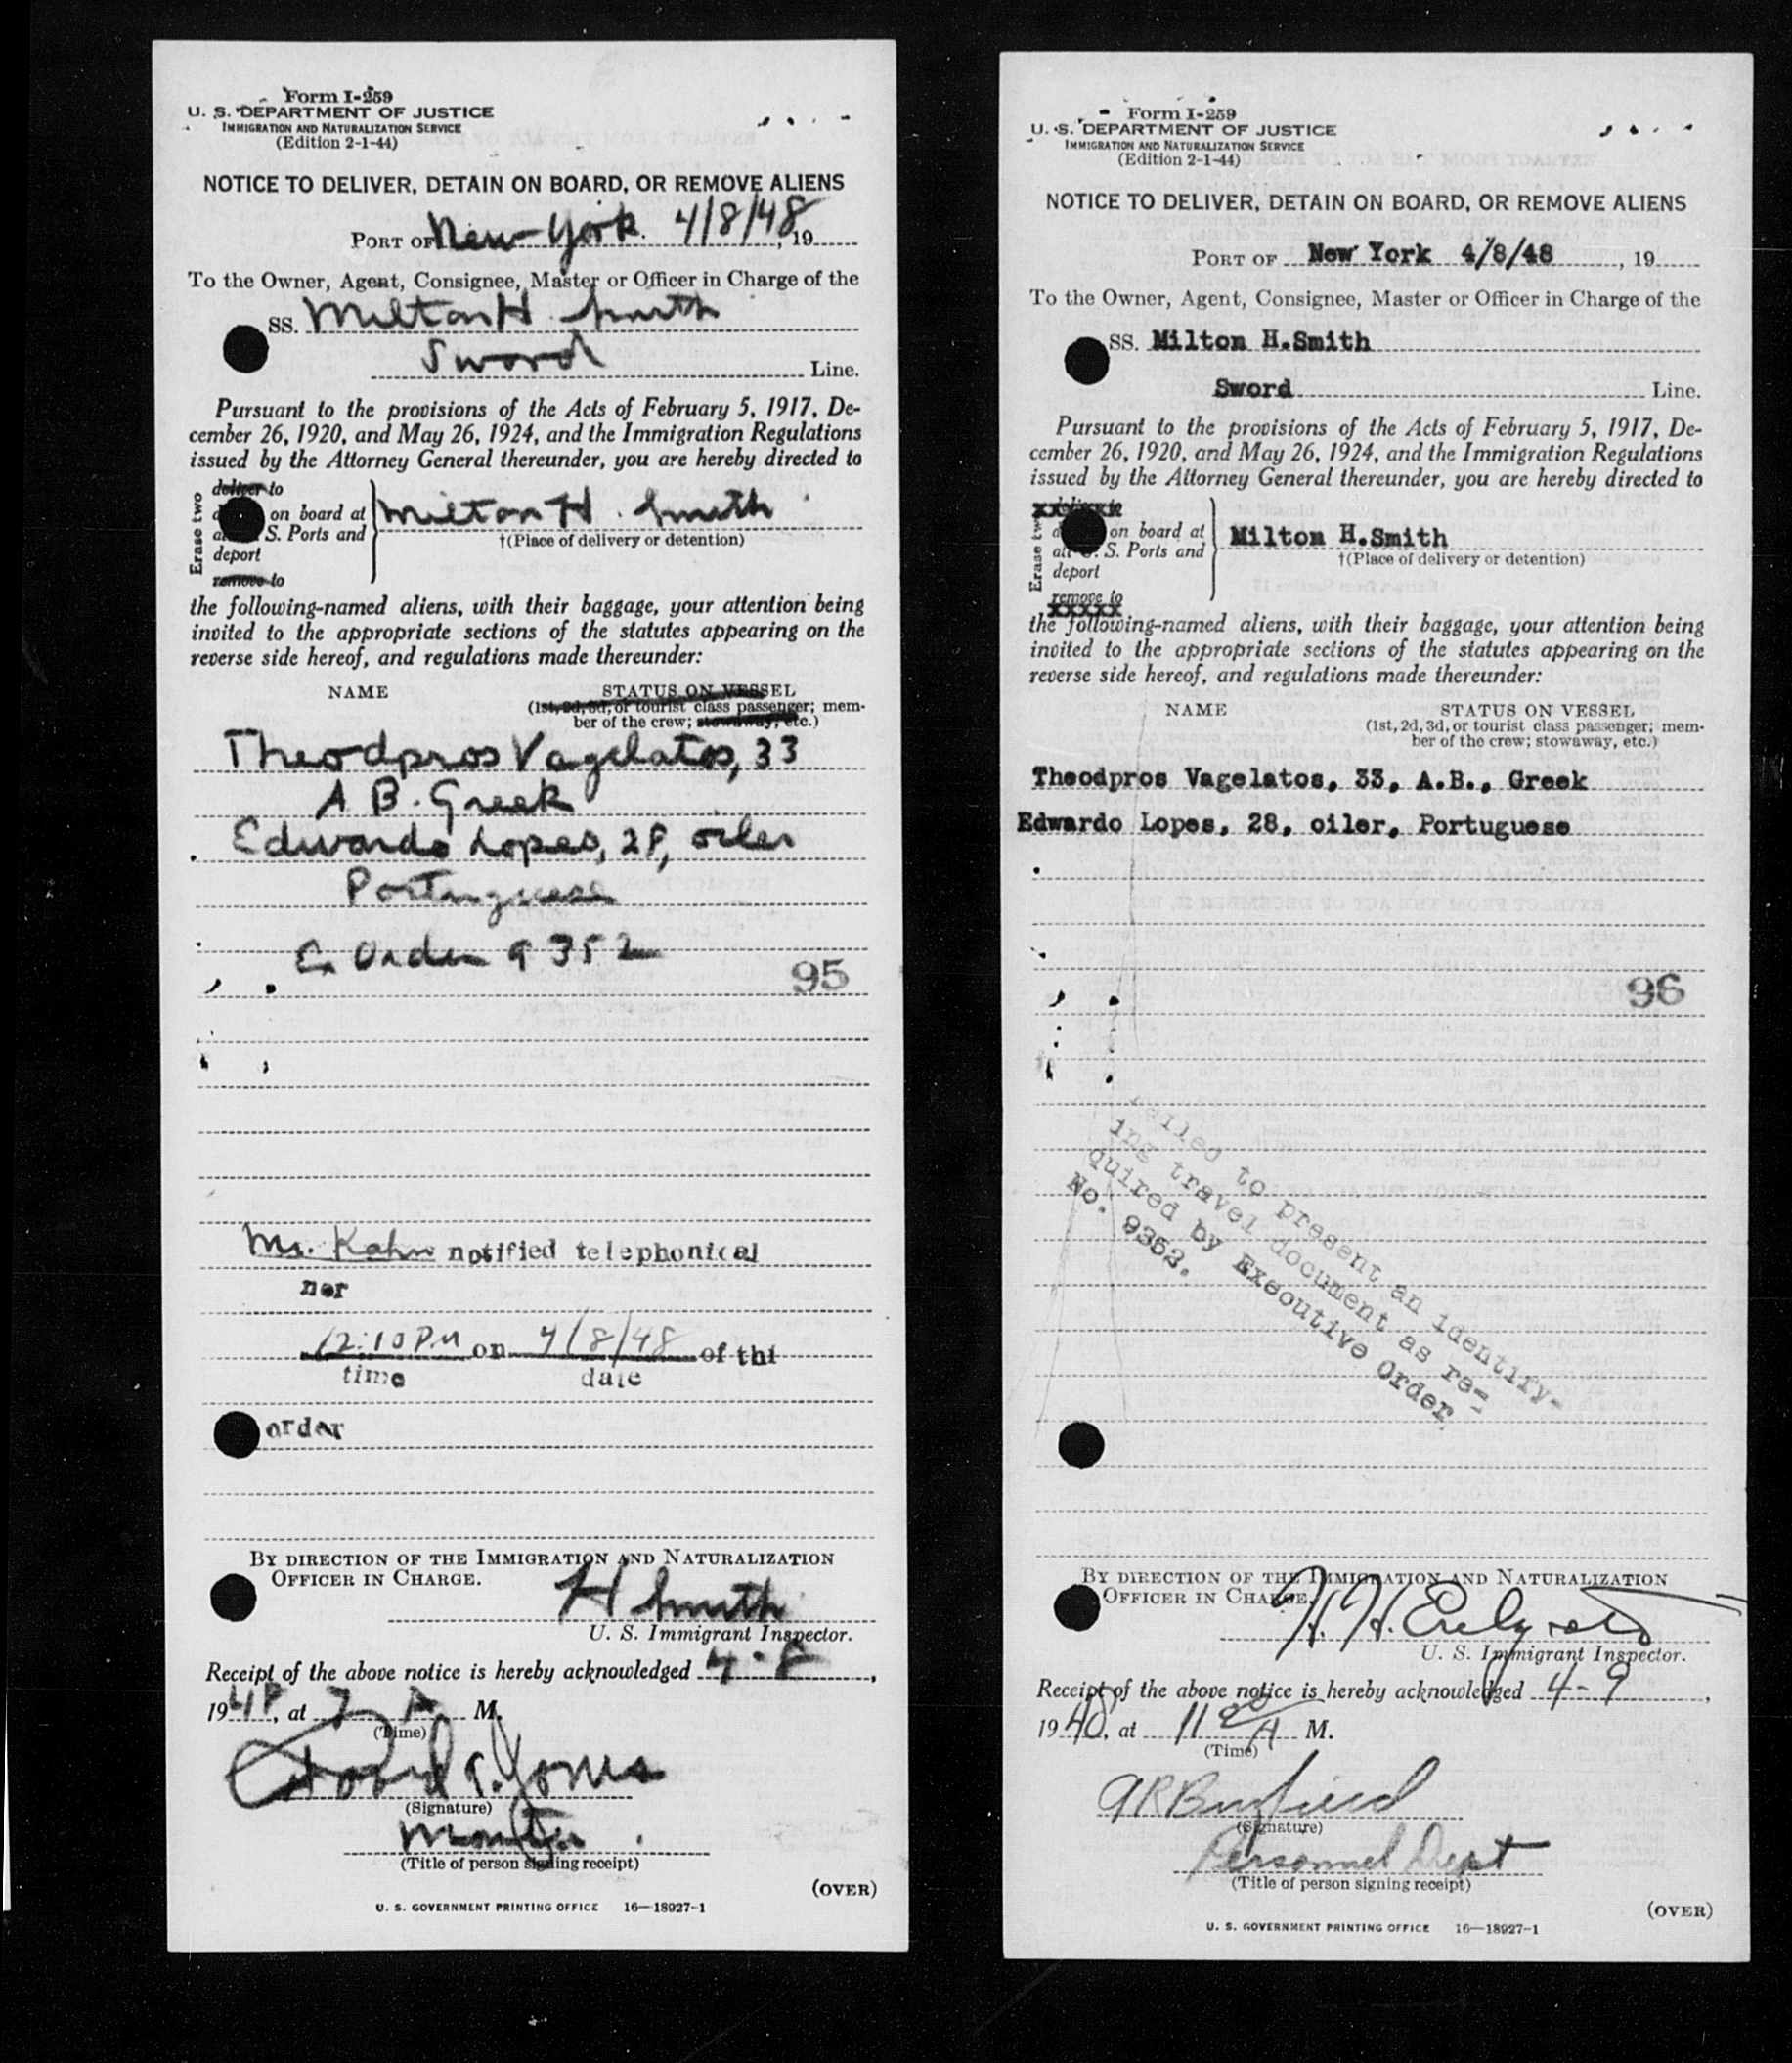 Form I-259
U. S. DEPARTMENT OF JUSTICE
IMMIGRATION AND NATURALIZATION SERVICE
(Edition 2-1-44)
NOTICE TO DELIVER, DETAIN ON BOARD, OR REMOVE ALIENS
PORT OF New York. 4/8/48, 19
To the Owner, Agent, Consignee, Master or Officer in Charge of the
SS. Milton H. Smith
Sword Line.
Pursuant to the provisions of the Acts of February 5, 1917, De-
cember 26, 1920, and May 26, 1924, and the Immigration Regulations
issued by the Attorney General thereunder, you are hereby directed to
Erase two
deliver to
on board at
S. Ports and
deport
remove to
Milton H. Smith
†(Place of delivery or detention)
the following-named aliens, with their baggage, your attention being
invited to the appropriate sections of the statutes appearing on the
reverse side hereof, and regulations made thereunder:
NAME STATUS ON VESSEL
(1st, 2d, 3d, or tourist class passenger; mem-
ber of the crew; stowaway, etc.)
Theodpros Vagelatos, 33
A B. Greek
Edwardo Lopes, 28, oiler
Portuguese
Ex Order 9352
95
Mr. Kahn notified telephonical
ner
12:10 PM on 4/8/48 of thi
time date
order
BY DIRECTION OF THE IMMIGRATION AND NATURALIZATION
OFFICER IN CHARGE.
H Smith
U. S. Immigrant Inspector.
Receipt of the above notice is hereby acknowledged 4-8,
1948, at 7 A M.
(Time)
Jones
(Signature)
Master
(Title of person signing receipt)
(OVER)
U. S. GOVERNMENT PRINTING OFFICE 16—18927-1
Form I-259
U. S. DEPARTMENT OF JUSTICE
IMMIGRATION AND NATURALIZATION SERVICE
(Edition 2-1-44)
NOTICE TO DELIVER, DETAIN ON BOARD, OR REMOVE ALIENS
PORT OF New York 4/8/48, 19
To the Owner, Agent, Consignee, Master or Officer in Charge of the
SS. Milton H.Smith
Sword Line.
Pursuant to the provisions of the Acts of February 5, 1917, De-
cember 26, 1920, and May 26, 1924, and the Immigration Regulations
issued by the Attorney General thereunder, you are hereby directed to
Erase two
deliver to
on board at
all U. S. Ports and
deport
remove to
xxxxx
Milton H.Smith
†(Place of delivery or detention)
the following-named aliens, with their baggage, your attention being
invited to the appropriate sections of the statutes appearing on the
reverse side hereof, and regulations made thereunder:
NAME STATUS ON VESSEL
(1st, 2d, 3d, or tourist class passenger; mem-
ber of the crew; stowaway, etc.)
Theodpros Vagelatos, 33, A.B., Greek
Edwardo Lopes, 28, oiler, Portuguese
96
Failed to present an identify-
ing travel document as re-
quired by Executive Order
No. 9352.
BY DIRECTION OF THE IMMIGRATION AND NATURALIZATION
OFFICER IN CHARGE.
H. H.
U. S. Immigrant Inspector.
Receipt of the above notice is hereby acknowledged 4-9,
1948, at 11 20 A M.
(Time)
(Signature)
Personnel Dept
(Title of person signing receipt)
(OVER)
U. S. GOVERNMENT PRINTING OFFICE 16—18927-1